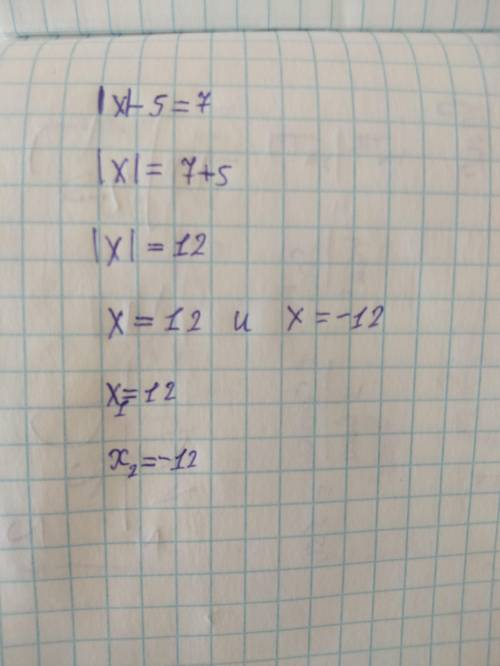 |x|-5=7
|x|= 7+5
|x|=12
x=12 и x=-12
x₁=12
x₂=-12